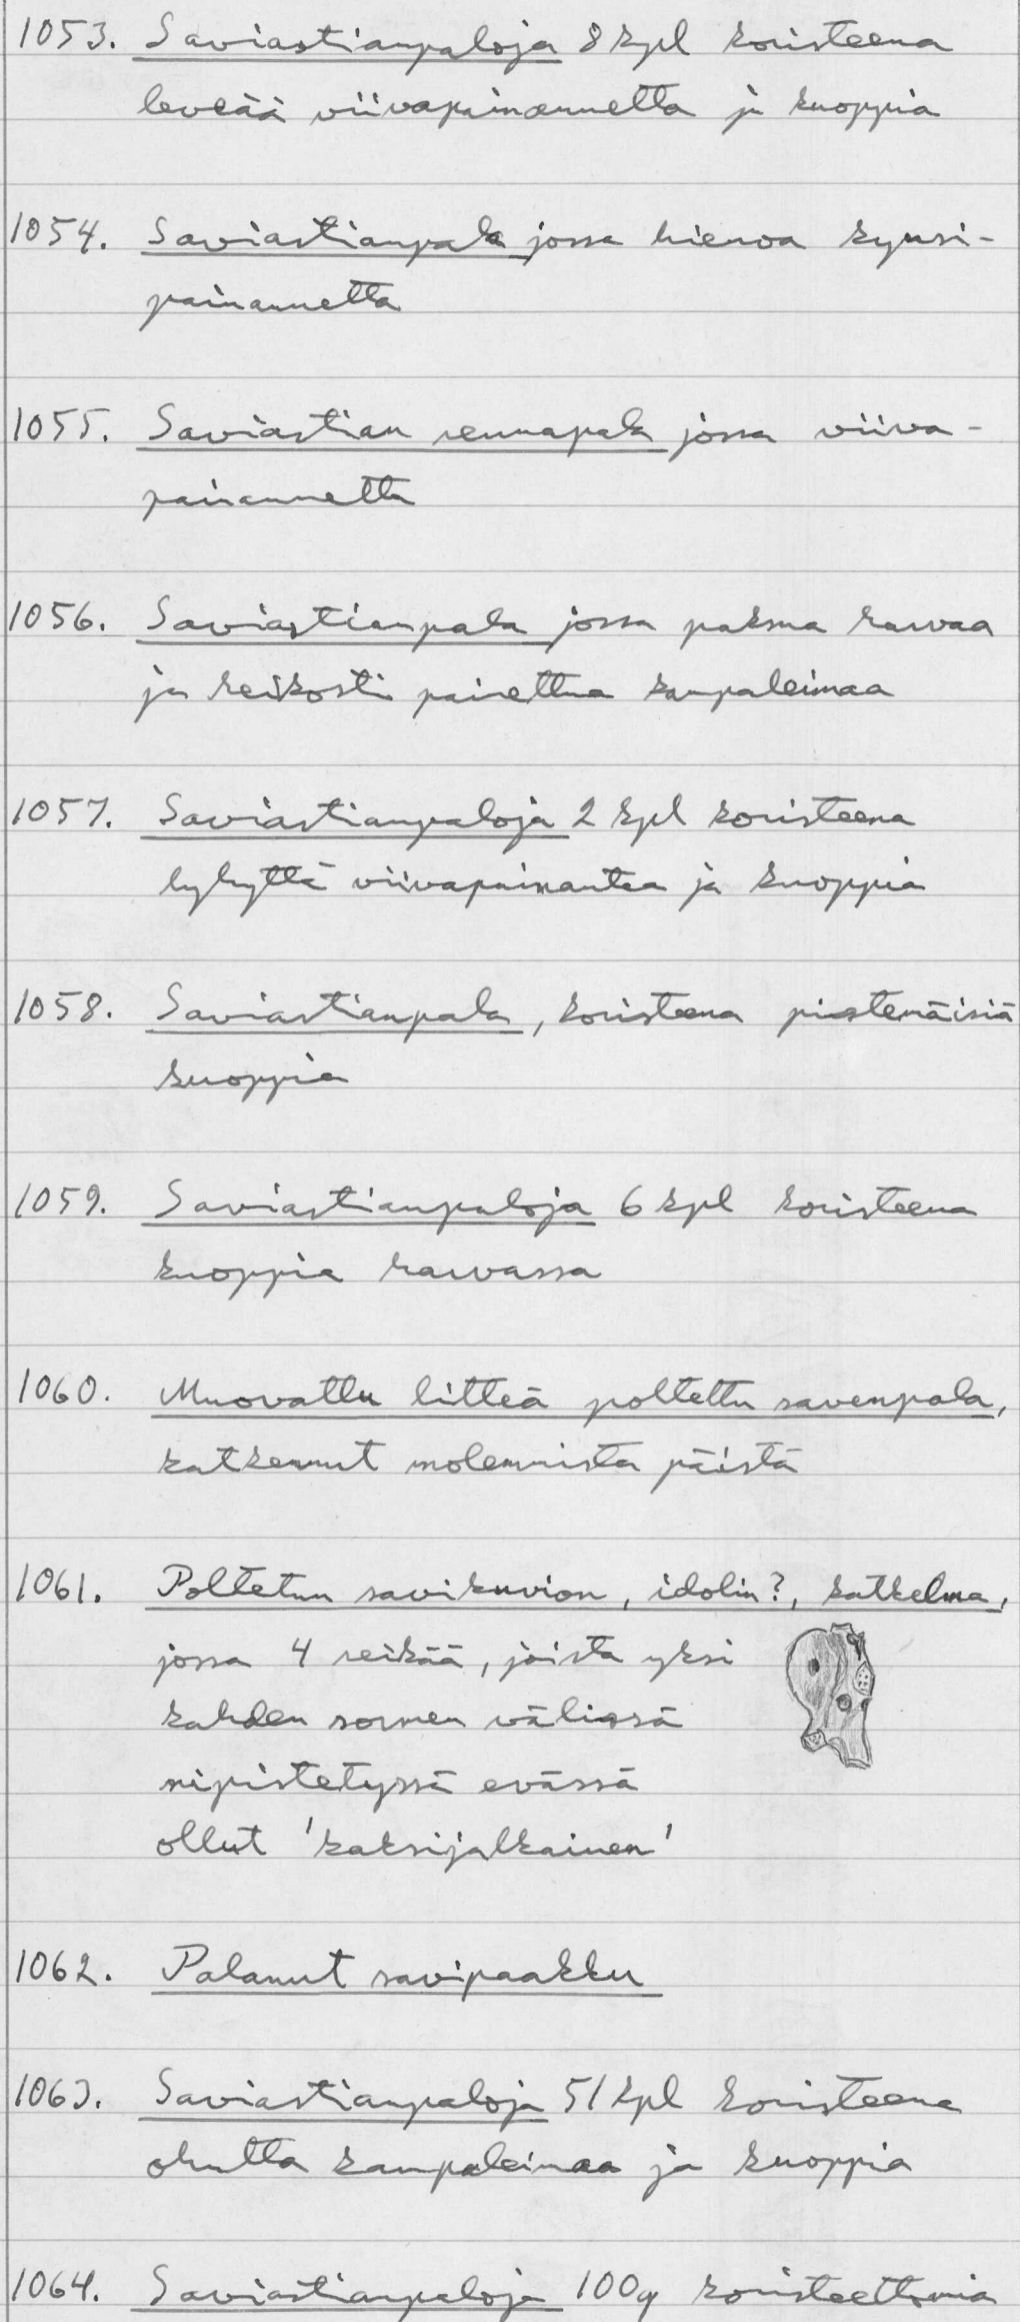 1053. Saviastianpaloja 8 kpl koristeena
leveää viivapainannetta ja kuoppia
1054. Saviastianpala jossa hienoa kynsi-
painannetta
1055. Saviastian reunapala jossa viiva-
painannetta
1056. Saviastianpala jossa paksua karvaa
ja heikosti painettua kampaleimaa
1057. Saviastianpaloja 2 kpl koristeena
lyhyttä viivapainantaa ja kuoppia
1058. Saviastianpala, koristeena pistemäisiä
kuoppia
1059. Saviastianpaloja 6 kpl koristeena
kuoppia
1060. Muovattu litteä poltettu savenpala,
katkennut molemmista päistä
1061. Poltetun savikuvion, idolin?, katkelma,
jossa 4 reikää, joista yksi
kahden sormen välissä
nipistetyssä evässä
ollut 'kaksijalkainen'
1062. Palanut savipaakku
1063. Saviastianpaloja 51 kpl koristeena
ohutta kampaleimaa ja kuoppia
1064. Saviastianpaloja 100g koristeettomia